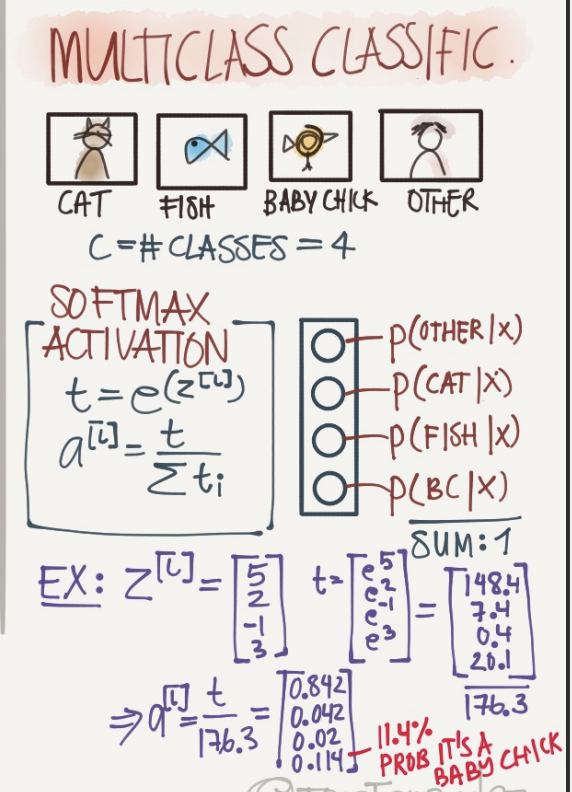 MULTICLASS CLASSIFIC.
CAT FISH BABY CHICK OTHER
C = # CLASSES = 4
SOFTMAX
ACTIVATION
t = e^(z^[L])
a^[L] = t / Σ ti
p(OTHER|X)
p(CAT|X)
p(FISH|X)
p(BC|X)
SUM: 1
EX: Z^[L] = [5 2 -1 3] t = [e^5 e^2 e^-1 e^3] = [148.4 7.4 0.4 20.1]
176.3
⇒ a^[L] = t / 176.3 = [0.842 0.042 0.02 0.114]
11.4%
PROB IT'S A
BABY CHICK